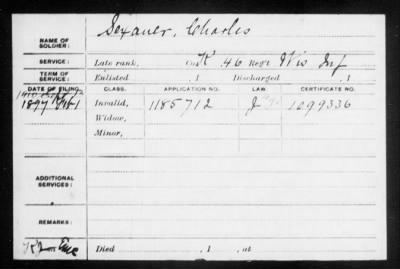 NAME OF SOLDIER: Sexauer, Charles
SERVICE: Late rank, Co. K, 46 Reg't Wis Inf
TERM OF SERVICE: Enlisted , 1 Discharged , 1
DATE OF FILING. CLASS. APPLICATION NO. LAW. CERTIFICATE NO.
1897 Invalid, 1185712 1099336
Widow,
Minor,
ADDITIONAL SERVICES:
REMARKS:
Died , 1 , at